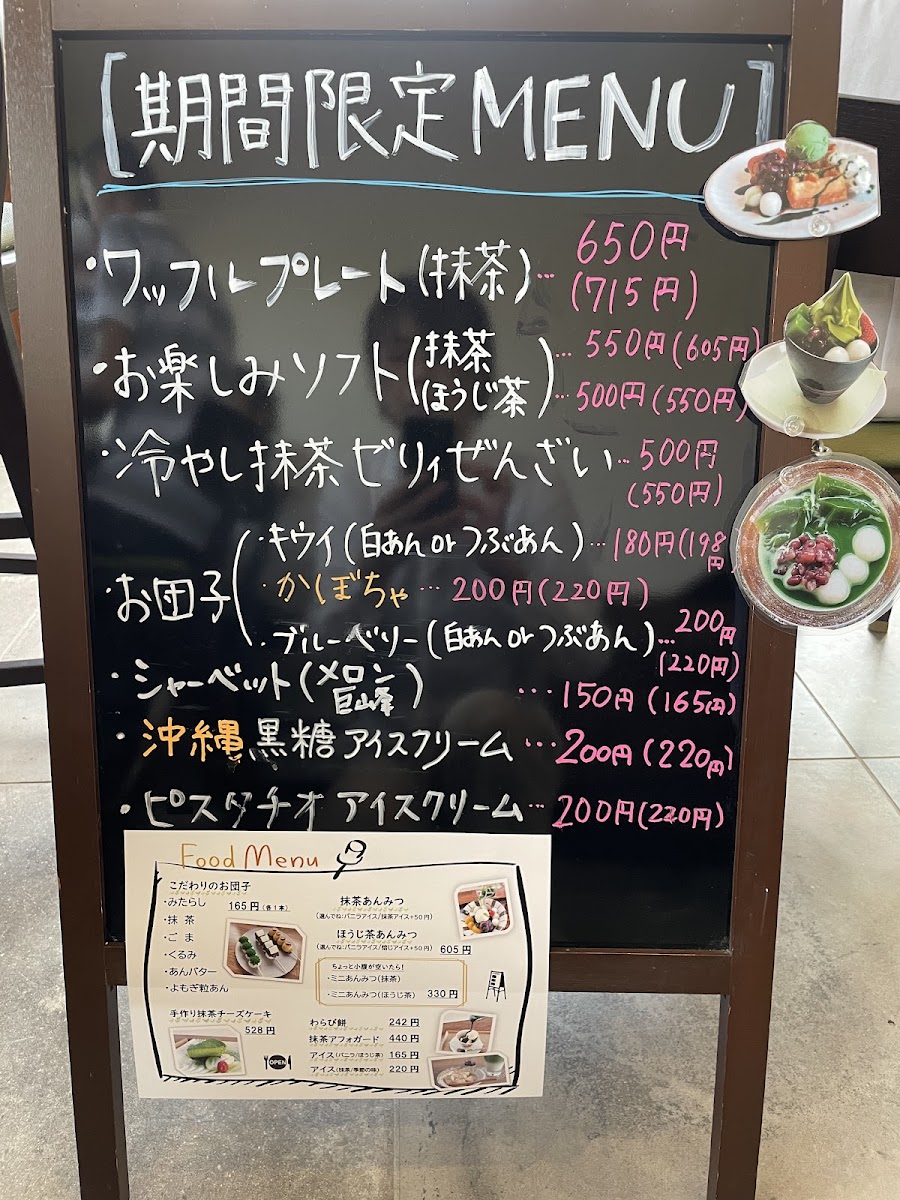 [期間限定MENU]
・ワッフルプレート(抹茶)… 650円
(715円)
・お楽しみソフト(抹茶 … 550円(605円)
ほうじ茶)… 500円(550円)
・冷やし抹茶ゼリィぜんざい… 500円
(550円)
・お団子(・キウイ(白あんorつぶあん)… 180円(198円)
・かぼちゃ… 200円(220円)
・ブルーベリー(白あんorつぶあん)… 200円
(220円)
・シャーベット(メロン
巨峰) … 150円(165円)
・沖縄黒糖アイスクリーム … 200円(220円)
・ピスタチオ アイスクリーム… 200円(220円)
Food Menu
こだわりのお団子
・みたらし 165円(各1本)
・抹茶
・ごま
・くるみ
・あんバター
・よもぎ粒あん
手作り抹茶チーズケーキ
528円
OPEN
抹茶あんみつ
(選んでね:バニラアイス/抹茶アイス+50円)
ほうじ茶あんみつ
(選んでね:バニラアイス/焙じアイス+50円) 605円
ちょっと小腹が空いたら!
・ミニあんみつ(抹茶)
・ミニあんみつ(ほうじ茶) 330円
わらび餅 242円
抹茶アフォガード 440円
アイス(バニラ/ほうじ茶) 165円
アイス(抹茶/季節の味) 220円